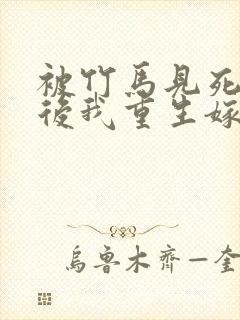 被竹馬見死
後我重生嫁
烏魯木齊—奎